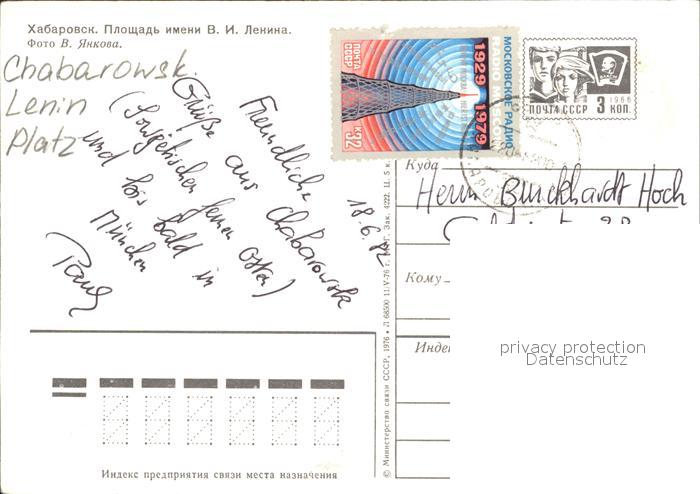 Хабаровск. Площадь имени В. И. Ленина.
Фото В. Янкова.
Chabarowsk.
Lenin
Platz
18.6.82
Freundliche
Grüße aus Chabarowsk
(Sowjetischer ferner Osten)
und bis bald in
München
Paul
ПОЧТА
СССР
К32
1929 1979
RADIO MOSCOW
МОСКОВСКОЕ РАДИО
ПОЧТА СССР 3 КОП.
1966
Куда
Herrn Burckhardt Hoch
Кому
Индек
privacy protection
Datenschutz
© Министерство связи СССР, 1976 • Л 68500 11/V-76 г. Зак. 4222. Ц. 5 к.
Индекс предприятия связи места назначения